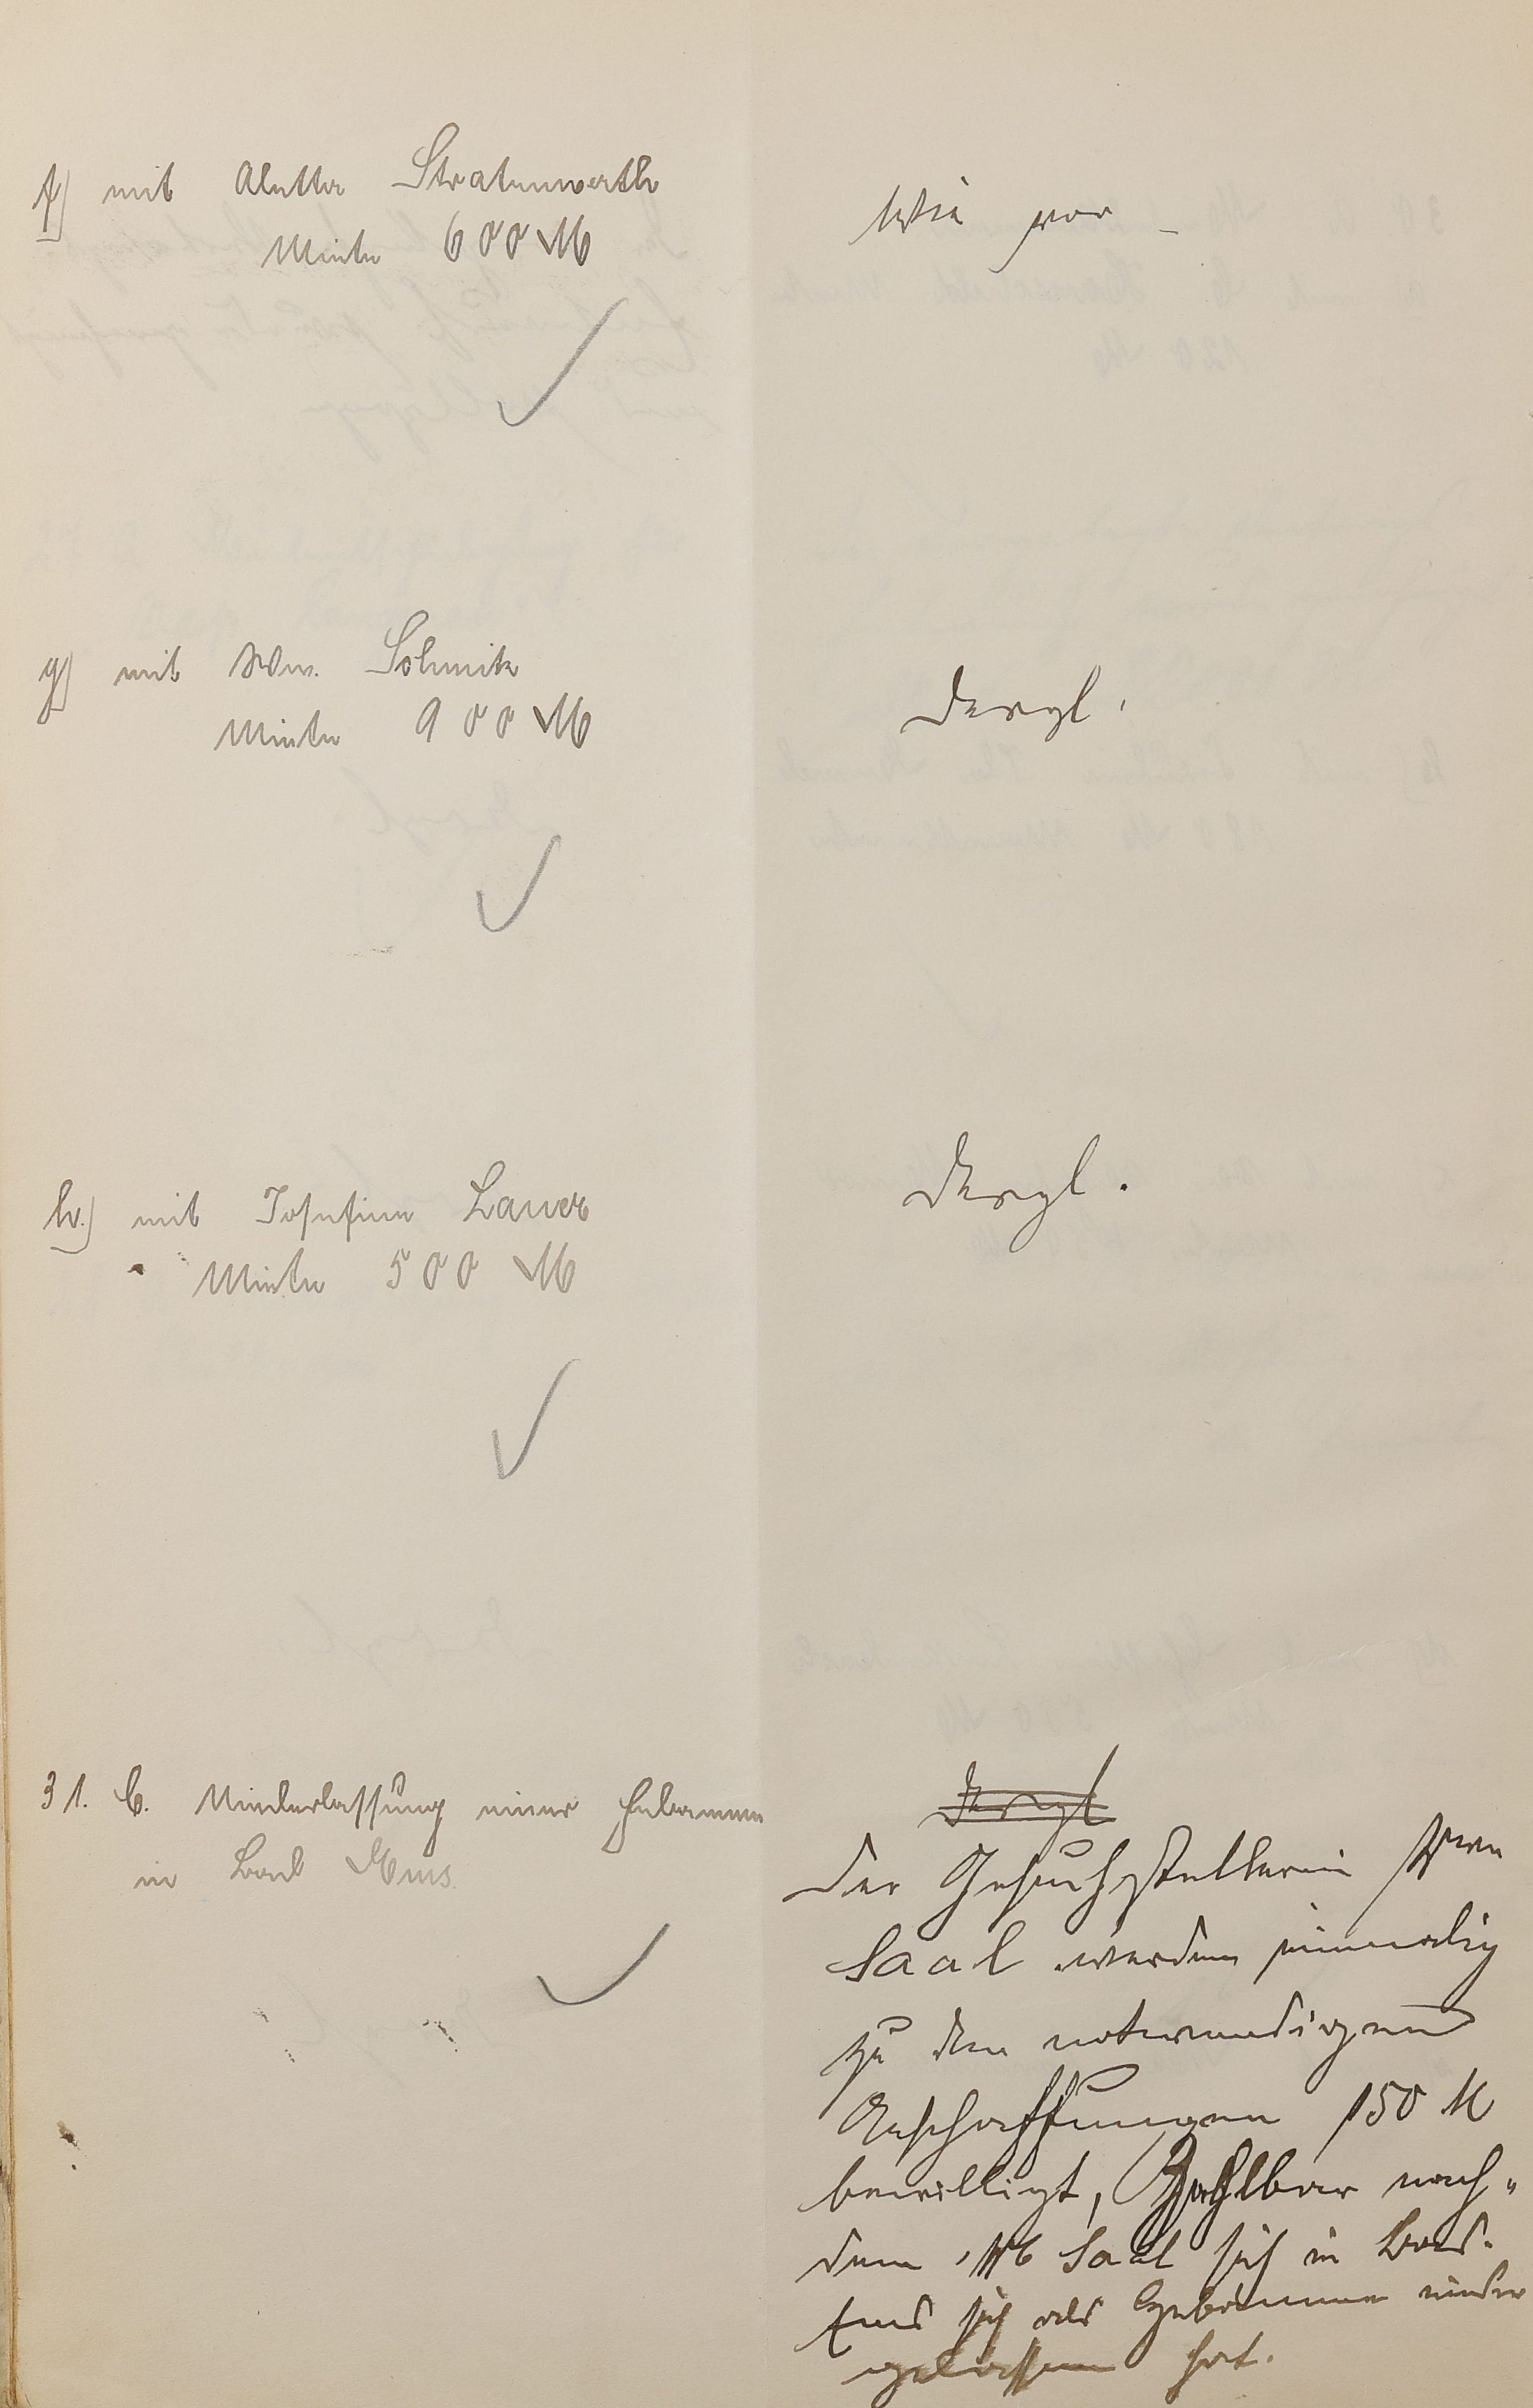 f) mit Aletta Stratenwerth
Miete 600 M
Wie vor
g) mit Ww. Schmitz
Miete 900 M
Dergl.
h.) mit Josefine Lauer
Miete 500 M
Dergl.
31. C. Niederlassung einer Hebamme
in Bad Ems.
Dergl
Der Gesuchstellerin Frau
Saal werden einmalig
zu den notwendigen
Anschaffungen 150 M
bewilligt, Zahlbar nach"
dem Saal sich in Bad.
Ems sich als Hebamme nieder
gelassen hat.